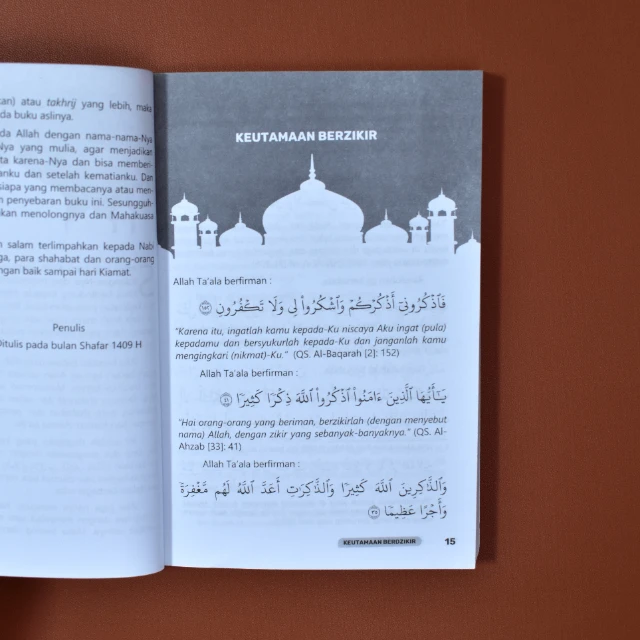 kan) atau takhrij yang lebih, maka
da buku aslinya.
da Allah dengan nama-nama-Nya
Nya yang mulia, agar menjadikan
ta karena-Nya dan bisa memberi-
anku dan setelah kematianku. Dan
siapa yang membacanya atau men-
n penyebaran buku ini. Sesungguh-
kan menolongnya dan Mahakuasa
n salam terlimpahkan kepada Nabi
ga, para shahabat dan orang-orang
ngan baik sampai hari Kiamat.
Penulis
Ditulis pada bulan Shafar 1409 H
KEUTAMAAN BERZIKIR
Allah Ta'ala berfirman :
فَاذْكُرُونِي أَذْكُرْكُمْ وَاشْكُرُوا لِي وَلَا تَكْفُرُونِ ١٥٢
"Karena itu, ingatlah kamu kepada-Ku niscaya Aku ingat (pula)
kepadamu dan bersyukurlah kepada-Ku dan janganlah kamu
mengingkari (nikmat)-Ku." (QS. Al-Baqarah [2]: 152)
Allah Ta'ala berfirman :
يَٰٓأَيُّهَا الَّذِينَ ءَامَنُوا اذْكُرُوا اللَّهَ ذِكْرًا كَثِيرًا ٤١
"Hai orang-orang yang beriman, berzikirlah (dengan menyebut
nama) Allah, dengan zikir yang sebanyak-banyaknya." (QS. Al-
Ahzab [33]: 41)
Allah Ta'ala berfirman :
وَالذَّٰكِرِينَ اللَّهَ كَثِيرًا وَالذَّٰكِرَٰتِ أَعَدَّ اللَّهُ لَهُم مَّغْفِرَةً
وَأَجْرًا عَظِيمًا ٣٥
KEUTAMAAN BERDZIKIR 15